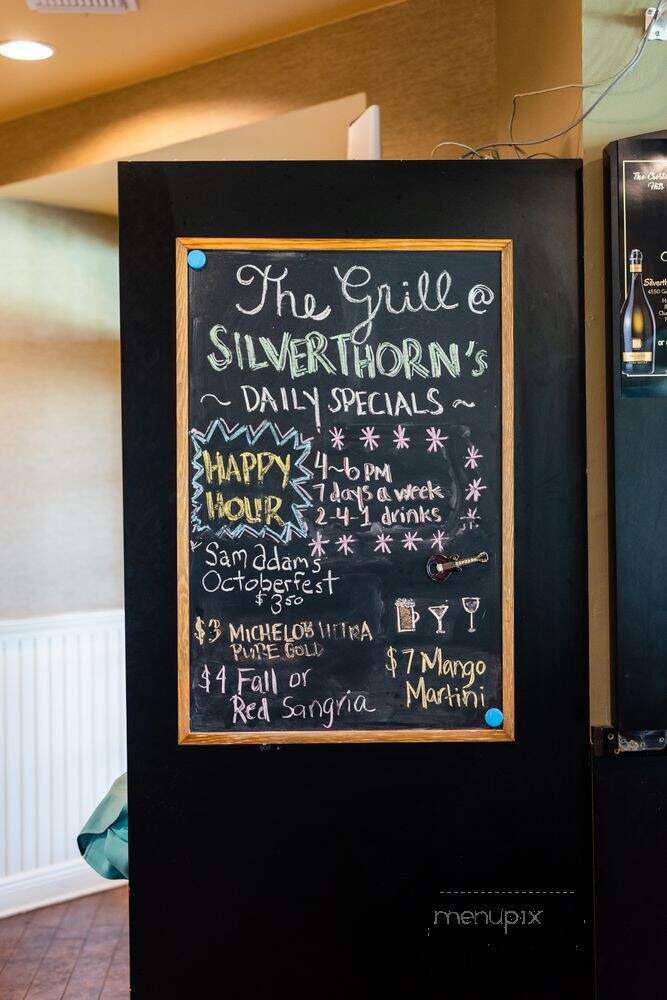 The Grill @
SILVERTHORN's
~ DAILY SPECIALS ~
HAPPY
HOUR
4~6 PM
7 days a week
2-4-1 drinks
Sam adams
Octoberfest
$3.50
$3 MICHELOB ULTRA
PURE GOLD
$4 Fall or
Red Sangria
$7 Mango
Martini
The
Hills
4550
menupix